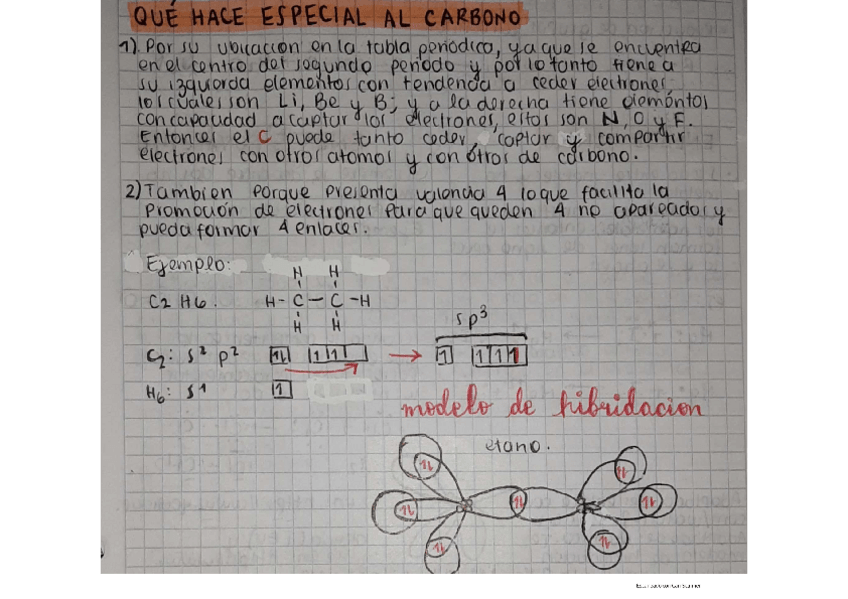 QUÉ HACE ESPECIAL AL CARBONO
1) Por su ubicacion en la tabla periodica, ya que se encuentra
en el centro del segundo periodo y por lo tanto tiene a
su izquierda elementos con tendencia a ceder electrones,
los cuales son Li, Be y B; y a la derecha tiene elementos
con capacidad a captar los electrones, estos son N, O y F.
Entonces el C puede tanto ceder, captar y compartir
electrones con otros atomos y con otros de carbono.
2) Tambien porque presenta valencia 4 lo que facilita la
promoción de electrones para que queden 4 no apareados y
pueda formar 4 enlaces.
Ejemplo:
H H
C2 H6. H - C - C - H
H H
sp³
C2: s² p² 1⇂ 1 1 → 1 1 1 1
H6: s¹ 1
modelo de hibridacion
etano.
1⇂ 1⇂
1⇂ 1⇂ 1⇂
1⇂ 1⇂